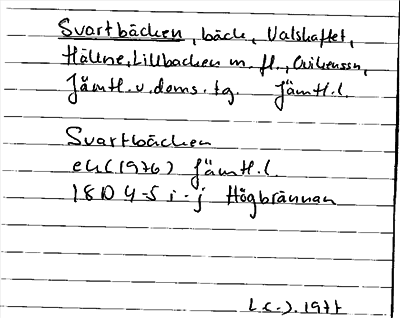 Svartbäcken, bäck, Valskaftet,
Hällne, Lillbacken m. fl.,
Jämtl. v. doms. tg. Jämtl. l.
Svartbäcken
ek (1976) Jämtl. l.
18D 4-5 i-j Högbrännan
1977